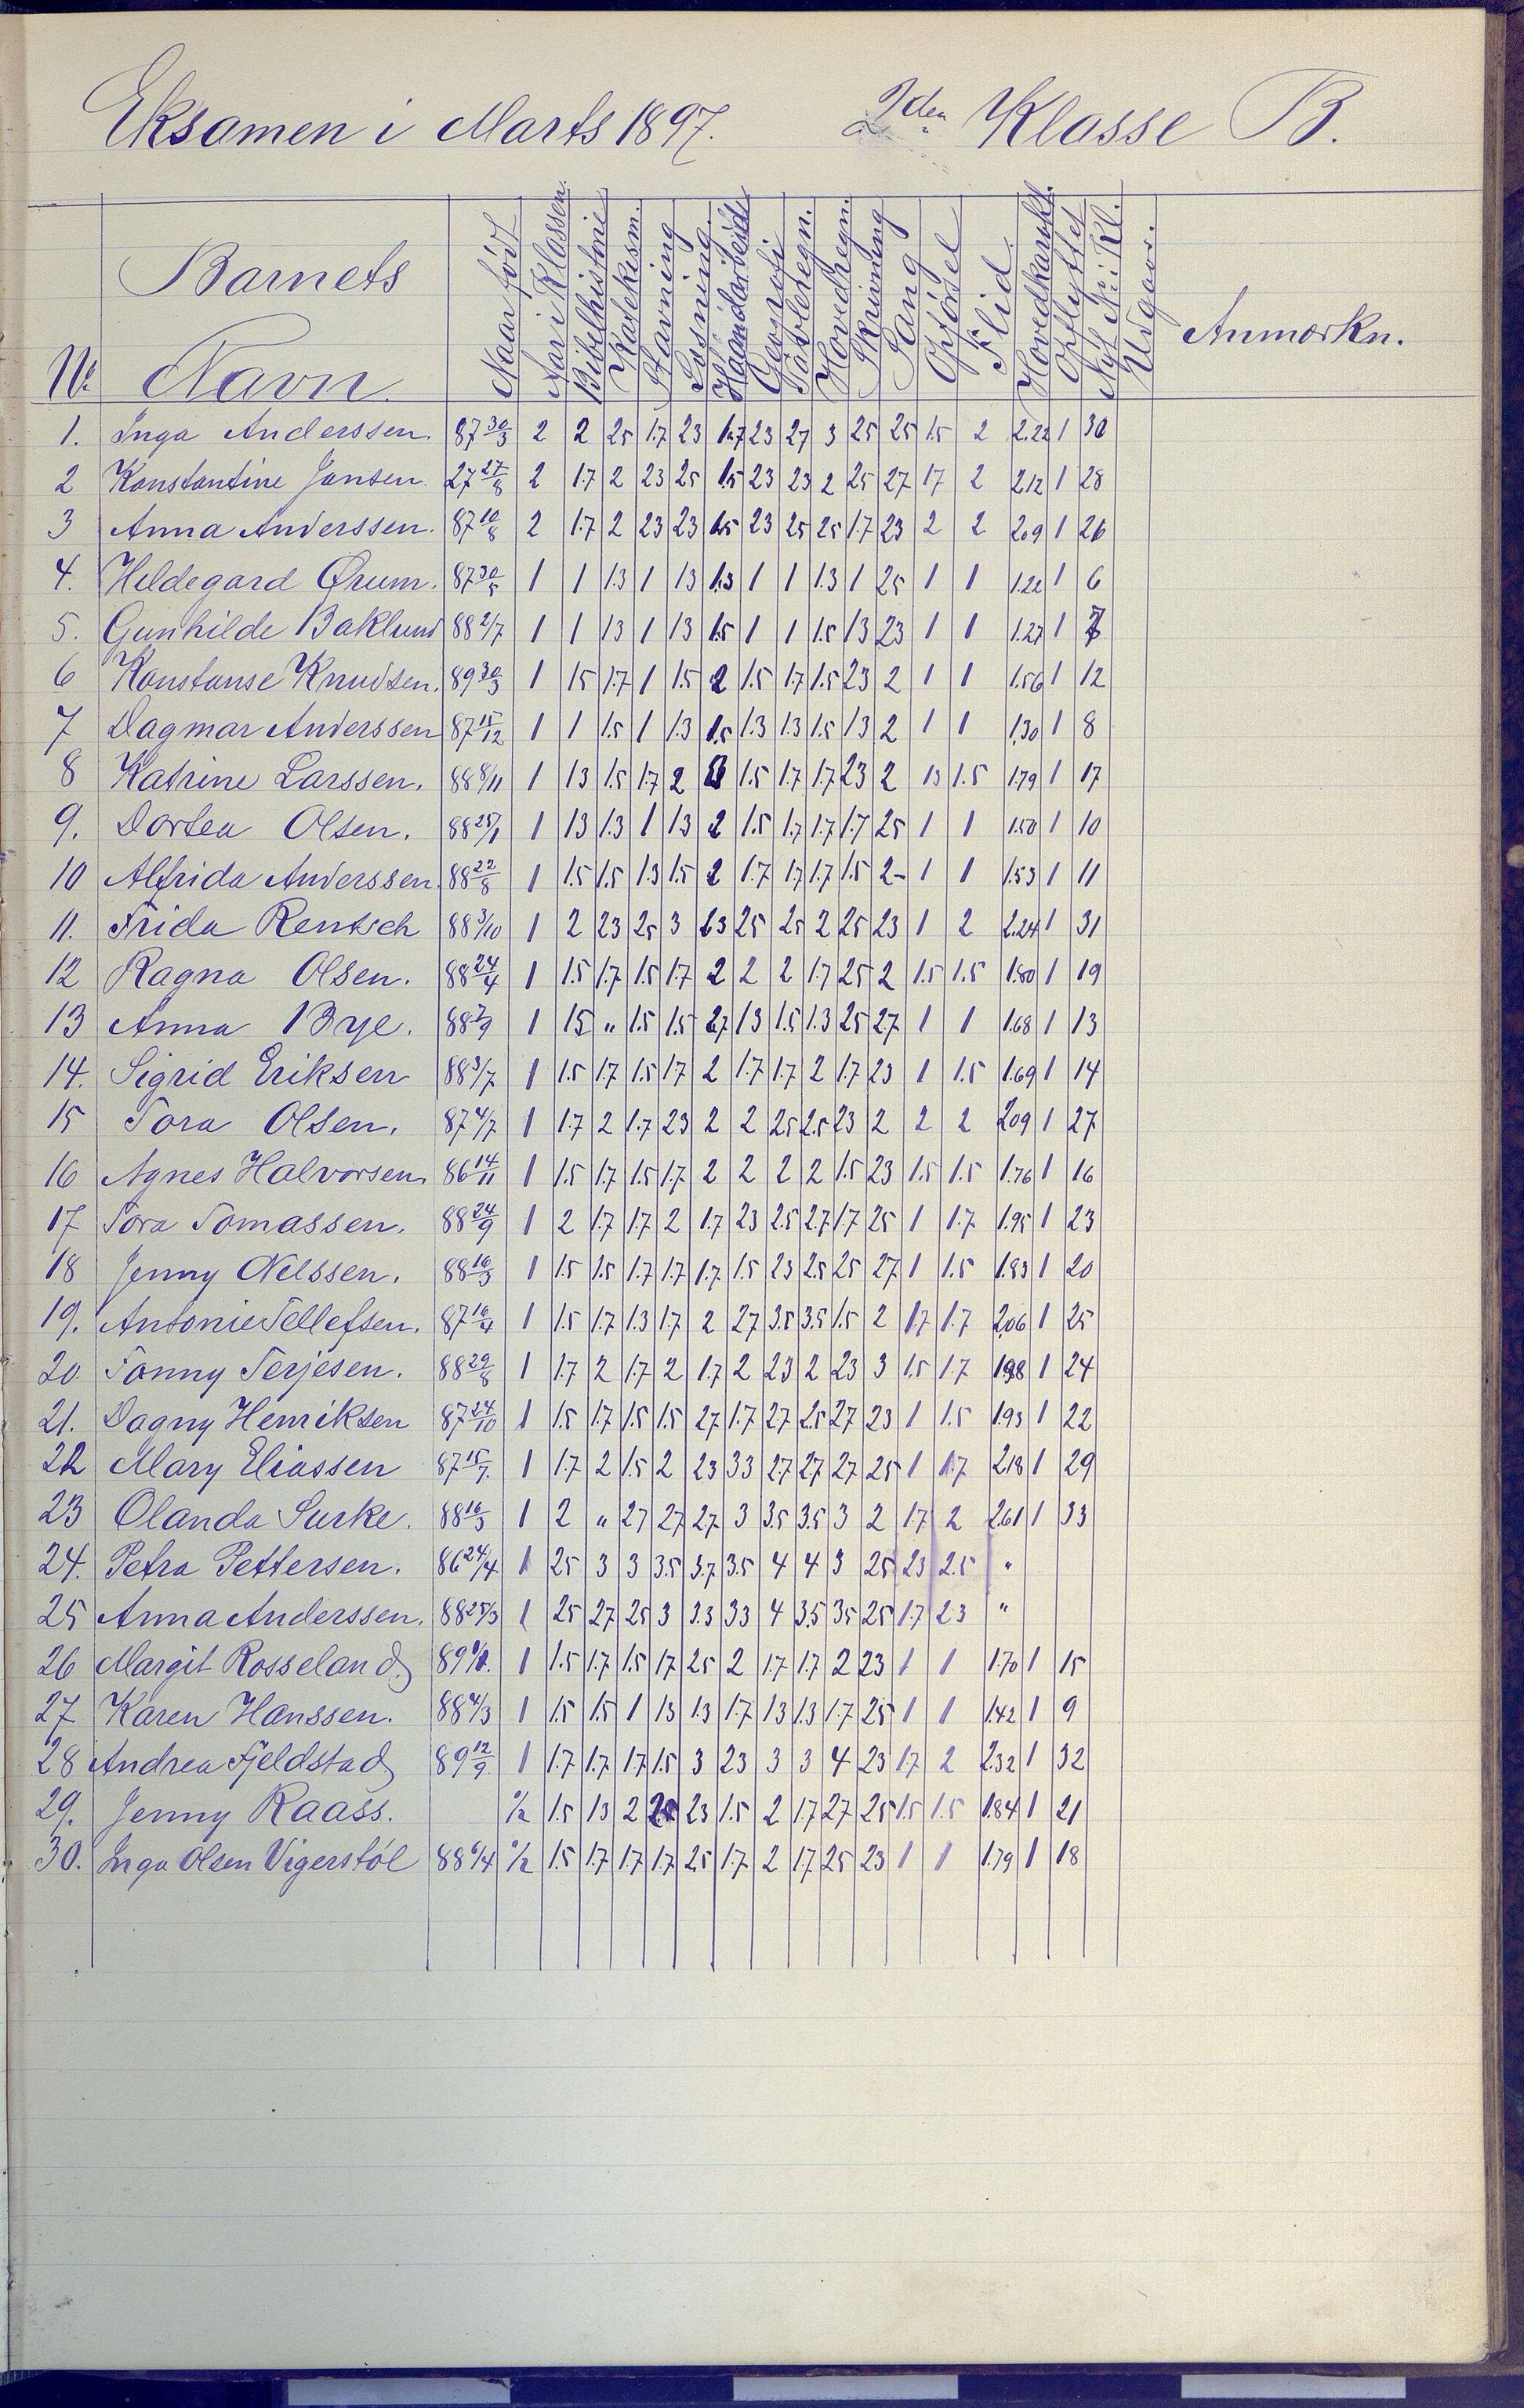 Eksamen i Marts 1897. 2den Klasse B.
Barnets
Navn.
No.
Naar født
Aar i Klassen.
Bibelhistorie
Katekism.
Stavning
Læsning.
Haandarbeide
Geografi
Tavleregn.
Hovedregn.
Skrivning
Sang
Opførsel
Flid.
Hovedkarakt.
Opflyttet
Nyt Nr. i Kl.
Udgaar.
Anmærkn.
1. Inga Anderssen. 87 30/3 2 2 25 1.7 23 1.7 23 27 3 25 25 1.5 2 2.22 1 30
2 Konstantine Jansen. 27 27/8 2 1.7 2 23 25 1.5 23 23 2 25 27 17 2 212 1 28
3 Anna Anderssen. 87 10/8 2 1.7 2 23 23 1.5 23 25 25 1.7 23 2 2 209 1 26
4. Hildegard Ørum. 87 30/5 1 1 1.3 1 13 1.3 1 1 1.3 1 25 1 1 1.22 1 6
5. Gunhilde Baklund 88 2/7 1 1 13 1 13 1.5 1 1 1.5 13 23 1 1 1.27 1 7
6 Konstanse Knudsen. 89 30/3 1 15 1.7 1 1.5 2 1.5 1.7 1.5 23 2 1 1 1.56 1 12
7 Dagmar Anderssen 87 15/12 1 1 1.5 1 1.3 1.5 1.3 1.3 1.5 13 2 1 1 1.30 1 8
8 Katrine Larssen. 88 8/11 1 13 1.5 1.7 2 1.5 1.7 1.7 23 2 13 1.5 1.79 1 17
9. Dortea Olsen. 88 25/1 1 13 1.3 1 13 2 1.5 1.7 1.7 1.7 25 1 1 1.50 1 10
10 Alfrida Anderssen. 88 22/8 1 1.5 1.5 1.3 1.5 2 1.7 1.7 1.7 1.5 2- 1 1 1.53 1 11
11. Frida Rentsch 88 3/10 1 2 23 25 3 25 25 2 25 23 1 2 2.24 1 31
12 Ragna Olsen. 88 24/4 1 1.5 1.7 1.5 1.7 2 2 2 1.7 25 2 1.5 1.5 1.80 1 19
13 Anna Bye. 88 7/9 1 15 " 1.5 1.5 2.7 13 1.5 1.3 25 27 1 1 1.68 1 13
14. Sigrid Eriksen 88 3/7 1 1.5 1.7 1.5 17 2 1.7 1.7 2 1.7 23 1 1.5 1.69 1 14
15 Tora Olsen. 87 4/7 1 1.7 2 1.7 23 2 2 25 2.5 23 2 2 2 209 1 27
16 Agnes Halvorsen. 86 14/11 1 1.5 1.7 1.5 1.7 2 2 2 2 1.5 23 1.5 1.5 1.76 1 16
17 Tora Tomassen. 88 24/9 1 2 1.7 1.7 2 1.7 23 2.5 2.7 1.7 25 1 1.7 1.95 1 23
18 Jenny Nelssen. 88 16/3 1 1.5 1.5 1.7 1.7 1.7 1.5 23 2.5 25 27 1 1.5 1.83 1 20
19. Antonie Tellefsen. 87 16/4 1 1.5 1.7 1.3 1.7 2 27 3.5 3.5 1.5 2 1.7 1.7 2.06 1 25
20 Tonny Terjesen. 88 29/8 1 1.7 2 1.7 2 1.7 2 23 2 23 3 1.5 1.7 1.98 1 24
21. Dagny Henriksen 87 24/10 1 1.5 1.7 1.5 1.5 27 1.7 27 2.5 27 23 1 1.5 1.93 1 22
22 Mary Eliassen 87 15/7. 1 1.7 2 1.5 2 23 33 27 27 27 25 1 1.7 218 1 29
23 Olanda Surke. 88 16/3 1 2 " 27 27 27 3 3.5 3.5 3 2 1.7 2 2.61 1 33
24. Petra Pettersen. 86 24/4 1 25 3 3 3.5 3.7 3.5 4 4 3 25 23 2.5 "
25 Anna Anderssen. 88 25/3 1 25 27 25 3 3.3 33 4 3.5 35 25 1.7 23 "
26 Margit Rosseland 89 1 1.5 1.7 1.5 17 25 2 1.7 1.7 2 23 1 1 1.70 1 15
27 Karen Hanssen. 88 4/3 1 1.5 1.5 1 13 1.3 1.7 13 1.3 1.7 25 1 1 1.42 1 9
28 Andrea Fjeldstad 89 12/9 1 1.7 1.7 1.7 1.5 3 23 3 3 4 23 17 2 2.32 1 32
29. Jenny Raass. ½ 1.5 13 2 23 1.5 2 1.7 27 25 1.5 1.5 1.84 1 21
30. Inga Olsen Vigerstøl 88 6/4 ½ 1.5 1.7 1.7 1.7 25 1.7 2 1.7 25 23 1 1 1.79 1 18